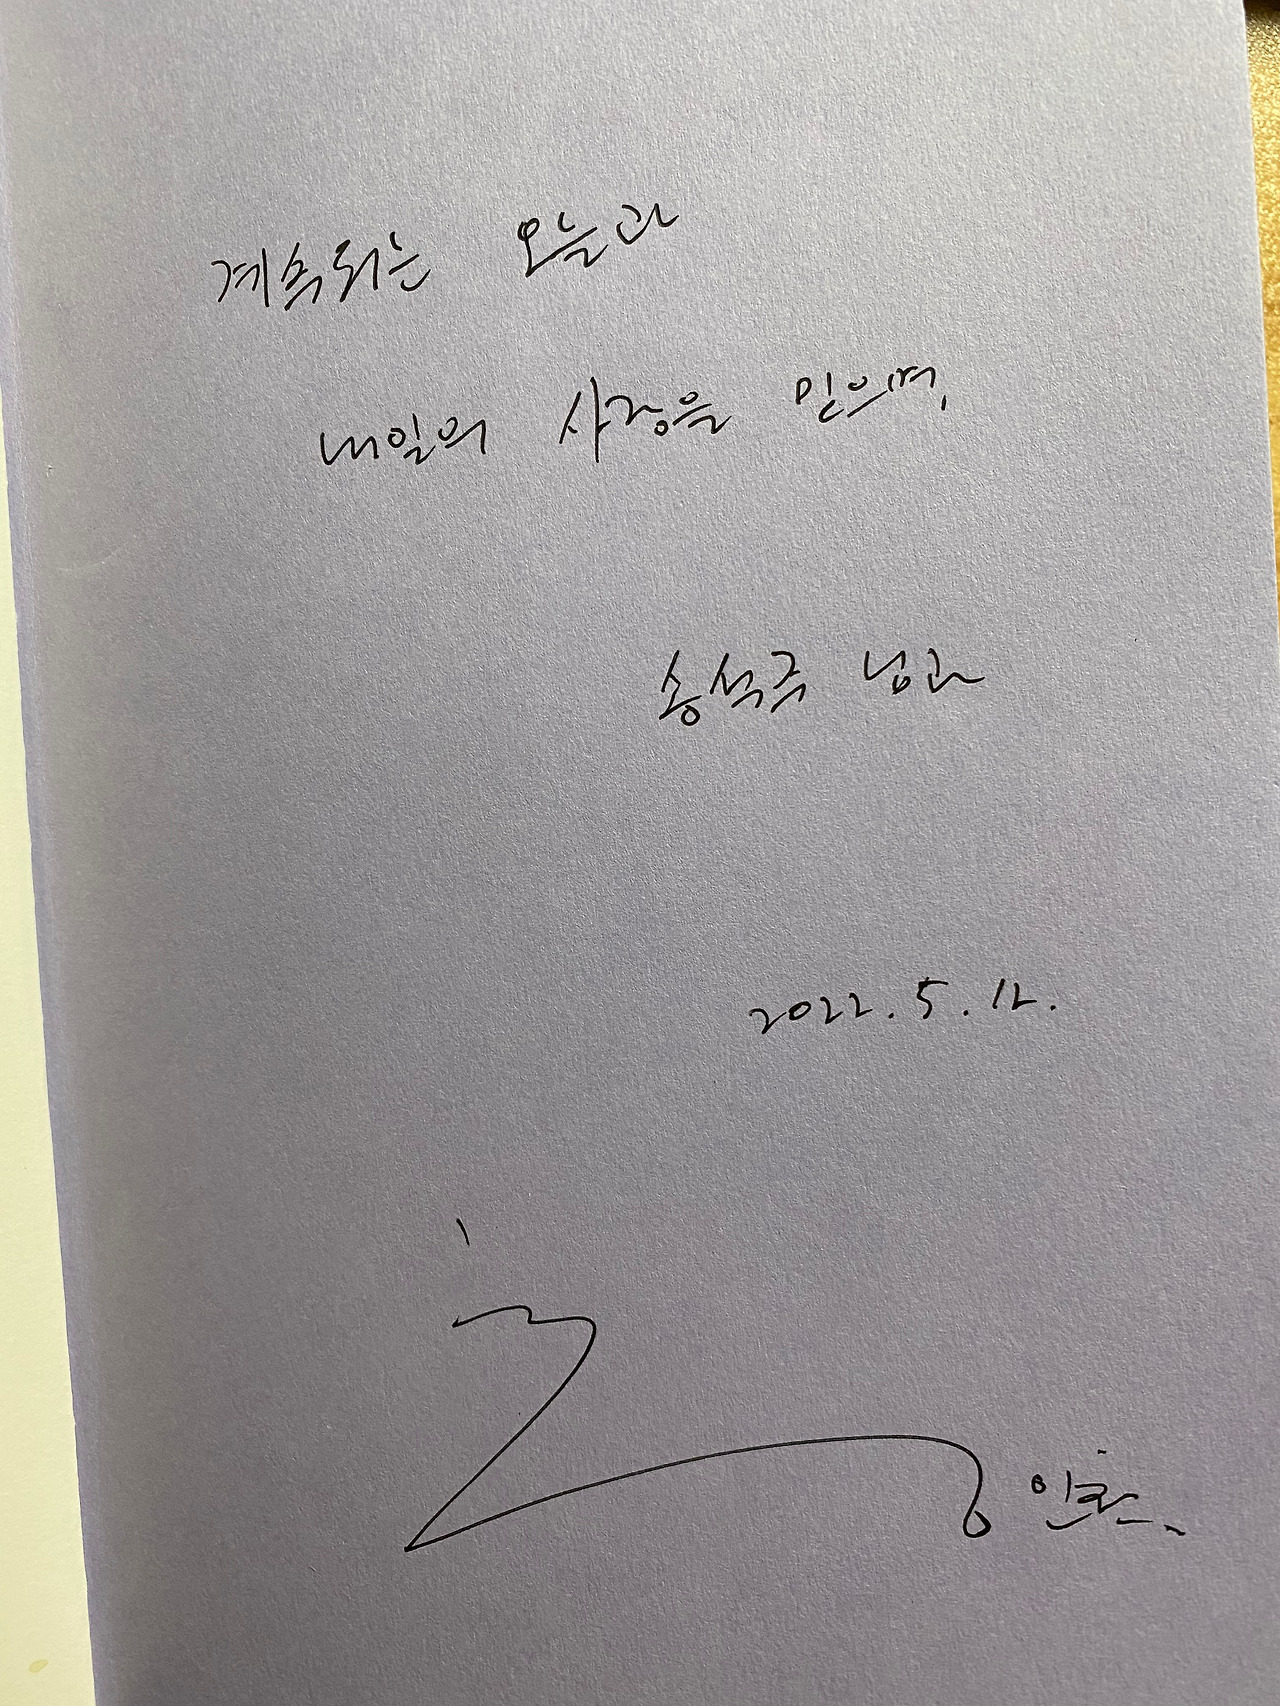 계속되는 오늘과
내일의 사랑을 믿으며,
송석주 님과
2022. 5. 12.